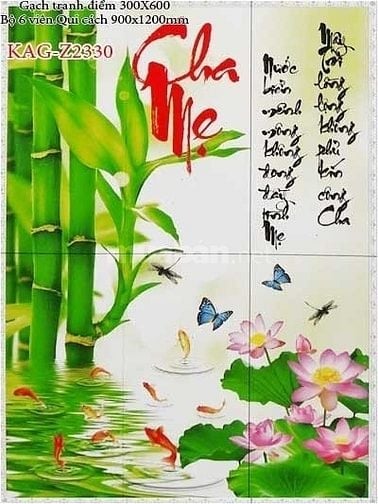 Gạch tranh điểm 300X600
Bộ 6 viên Qui cách 900x1200mm
KAG-Z2330
Cha
Mẹ
Nước biển mênh mông không đong đầy tình Mẹ
Mây trời lồng lộng không phủ kín công Cha